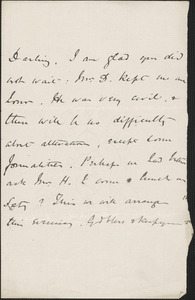 Darling, I am glad you did
not wait. Mr. D. kept me an
hour. He was very civil, &
there will be no difficulty
about alterations, except some
formalities. Perhaps we had better
ask Mrs. H. to come & lunch on
? This we will arrange
this evening. God bless & keep you